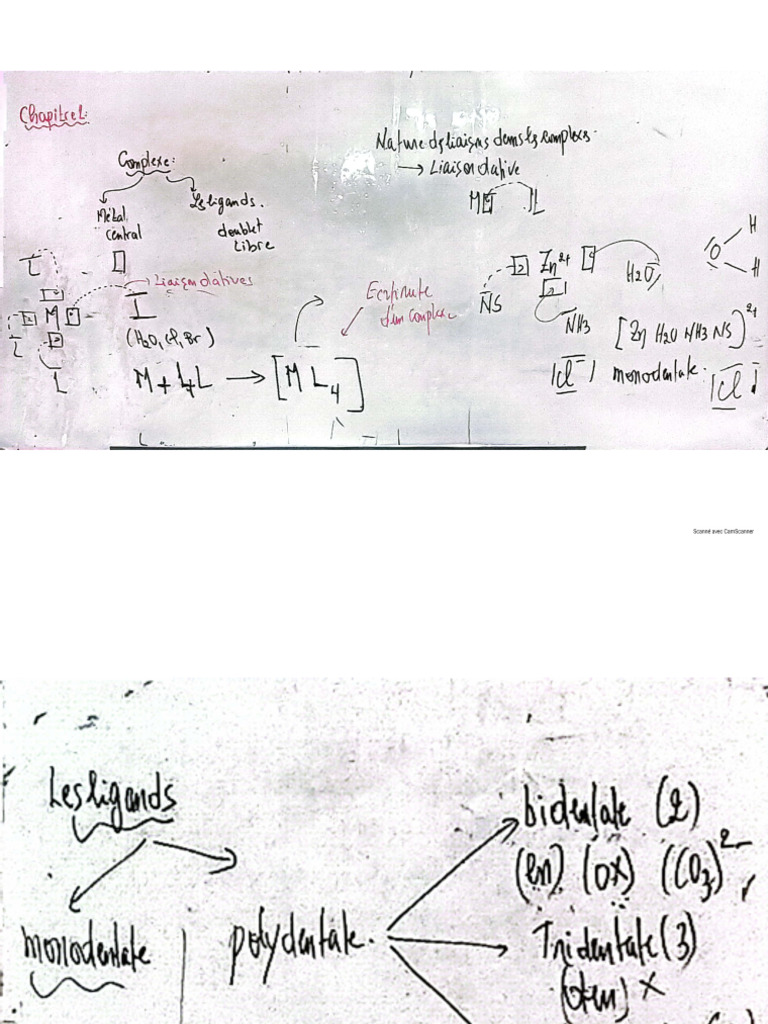 Chapitre1:
Complexe:
Métal
central
Les ligands.
doublet
libre
Liaison datives
(H2O, Cl, Br)
M + 4L → [M L4]
Ecriture
d'un complexe
Nature des liaisons dans les complexes.
→ Liaison dative
M L
Zn2+
H2O
NS
NH3
[Zn H2O NH3 NS]2+
O H
H
|Cl-| monodentate.
|Cl|
Scanné avec CamScanner
Les ligands
monodentate
polydentate.
bidentate (2)
(en) (ox) (CO3)2-
Tridentate (3)